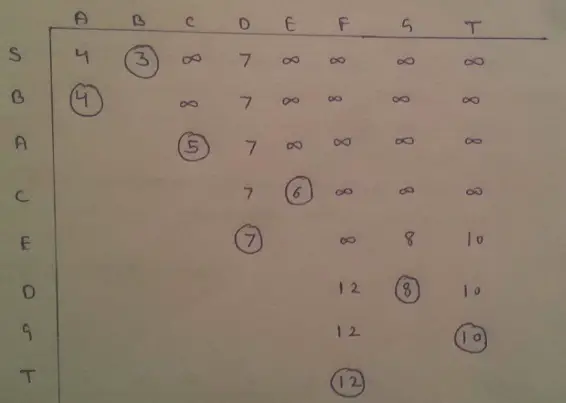 A B C D E F G T
S 4 3 ∞ 7 ∞ ∞ ∞ ∞
B 4 ∞ 7 ∞ ∞ ∞ ∞
A 5 7 ∞ ∞ ∞ ∞
C 7 6 ∞ ∞ ∞
E 7 ∞ 8 10
D 12 8 10
G 12 10
T 12